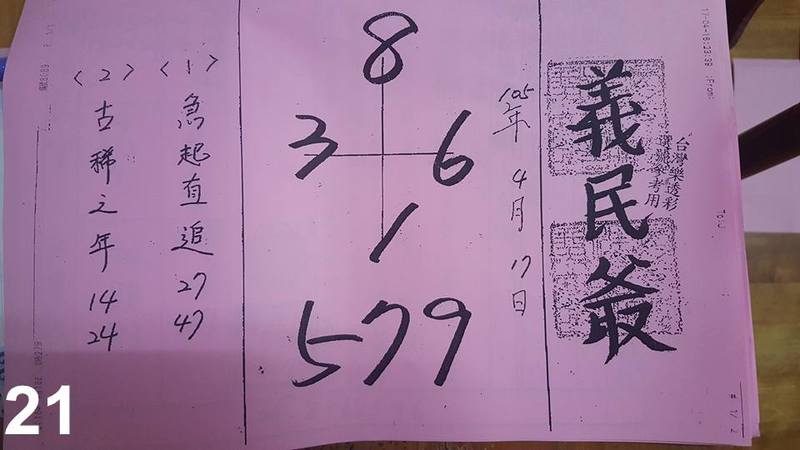 義民爺
台灣樂透彩
選號參考用
105年4月17日
8
3 6
1
579
〈1〉急起直追 27 47
〈2〉古稀之年 14 24
17-04-16;23:38 ;From:
To:J
# 1/ 2
21